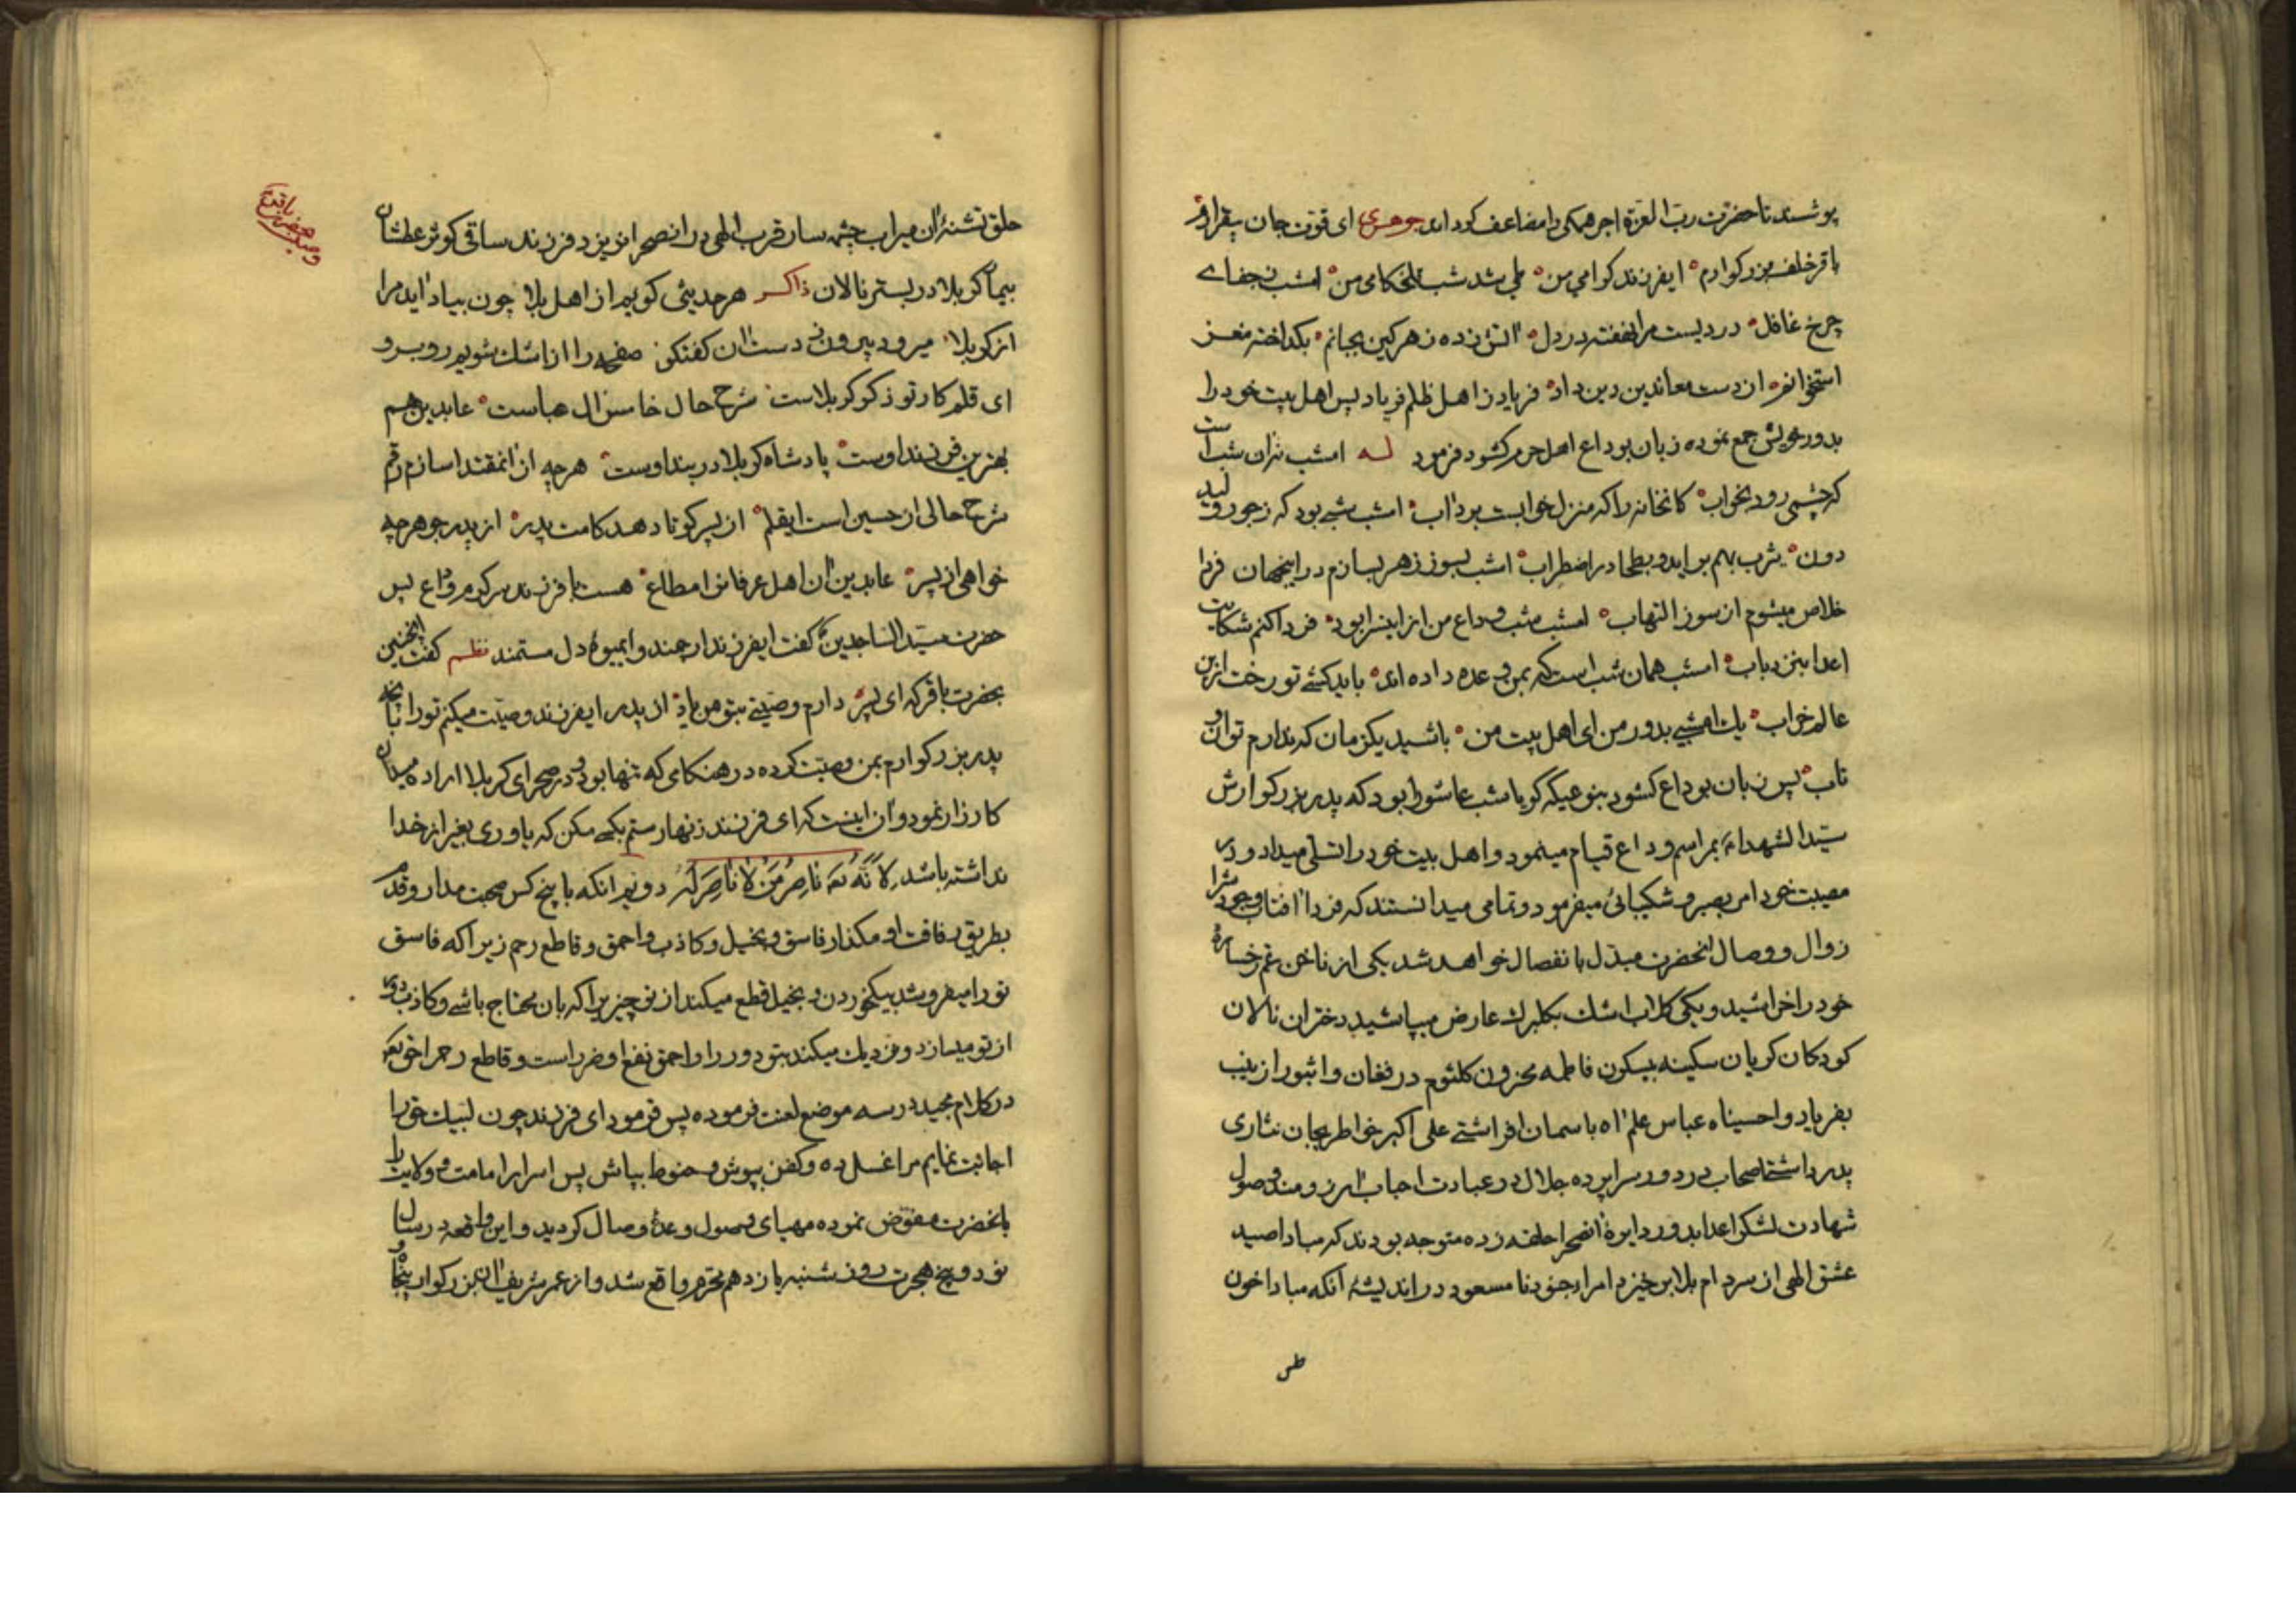 پوشند تا حضرت رب العزة اجر همکی را مضاعف کرداند جوهری ای قوت جان بیقرارم
باقر خلف بزرکوارم ایفرزند کرامی من طی شد شب تلخکامی من امشب ز جفای
چرخ غافل دردیست مرا نهفته در دل اتش زده زهر کین بجانم بکداخته مغز
استخوانم از دست معاندین دین داد فریاد ز اهل ظلم فریاد پس اهل بیت خود را
بدور خویش جمع نموده زبان بوداع اهل حرم کشود فرمود له امشب نه ان شب است
که چشمی رود بخواب کانخانه را که منزل خوابست برد اب امشب شبی بود که ز جور ولید
دون یثرب بهم براید و بطحا در اضطراب امشب بسوز زهر بسازم در اینجهان فردا
خلاص میشوم از سوز التهاب امشب شب وداع من از اینسرا بود فردا کنم شکایت
اعدا بنزد باب امشب همان شب است که بمن وعده داده اند باید کشی تو رخت ازین
عالم خراب یک امشبی بدور من ای اهل بیت من باشید یکزمان که ندارم توان و
تاب پس زبان بوداع کشود بنوعیکه کویا شب عاشورا بود که پدر بزرکوارش
سید الشهداء بمراسم وداع قیام مینمود و اهل بیت خود را تسلی میداد و در
مصیبت خود امر بصبر و شکیبائی میفرمود و تمامی میدانستند که فردا افتاب وجودش را
زوال و وصال انحضرت مبدل بانفصال خواهد شد یکی از ناخن غم رخساره
خود را خراشید و یکی کلاب اشک بکلبرک عارض میپاشید دختران نالان
کودکان کریان سکینه بیسکون فاطمه محزون کلثوم در فغان و اثبورا زینب
بفریاد واحسیناه عباس علم اه باسمان افراشتی علی اکبر خواطر بجان نثاری
پدر داشت اصحاب در دور سراپرده جلال در عبادت احباب ارزومند وصول
شهادت لشکر اعدا بدور دایرۀ انصحرا حلقه زده متوجه بودند که مبادا صید
عشق الهی از سر دام بلا بر خیزد امرار جنود نامسعود در اندیشۀ انکه مبادا خون
حلق تشنۀ ان میراب چشمه سار قرب الهی در انصحرا نریزد فرزند ساقی کوثر عطشان
بیمار کربلا در بستر نالان ذاکر هر حدیثی کویم از اهل بلا چون بیاد اید مرا
از کربلا میرود بیرون ز دست ان کفتکو صفحه را از اشک شویم روبرو
ای قلم کار تو ذکر کربلاست شرح حال خامس ال عباست عابدین هم
بهترین فرزند اوست پادشاه کربلا دربند اوست هر چه از انمقتدا سازم رقم
شرح حالی از حسین است ایقلم از پسر کوتا دهد کامت پدر از پدر جو هر چه
خواهی از پسر عابدین ان اهل عرفانرا مطاع هست با فرزند سرکرم وداع پس
حضرت سید الساجدین کفت ایفرزند ارجمند و ایمیوۀ دل مستمند نظم کفت اینچنین
بحضرت باقر که ای پسر دارم وصیتی بتو من یاد از پدر ایفرزند وصیت میکنم تو را بانچه
پدر بزرکوارم بمن وصیت کرده در هنکامی که تنها بود و در صحرای کربلا اراده میدان
کارزار نمود و ان اینست که ای فرزند زنهار ستم بکسی مکن که یاوری بغیر از خدا
نداشته باشد لانه نعم ناصر من لا ناصر له دویم انکه با پنج کس صحبت مدار و قدم
بطریق رفاقت او مکذار فاسق و بخیل و کاذب و احمق و قاطع رحم زیرا که فاسق
تو را میفروشد بیکخوردن و بخیل قطع میکند از تو چیزیرا که بان محتاج باشی و کاذب دور
از تو میسازد و نزدیک میکند بتو دور را و احمق نفع او ضرر است و قاطع رحم را حق تعم
در کلام مجید در سه موضع لعنت فرموده پس فرمود ای فرزند چون لبیک حق را
اجابت نمایم مرا غسل ده و کفن بپوش و حنوط بپاش پس اسرار امامت و ولایت را
بانحضرت مفوض نموده مهیای وصول وعدۀ وصال کردید و این واقعه در سال
نود و پنج هجرت روز شنبه یازدهم محرم واقع شد و از عمر شریف ان بزرکوار پنجاه و